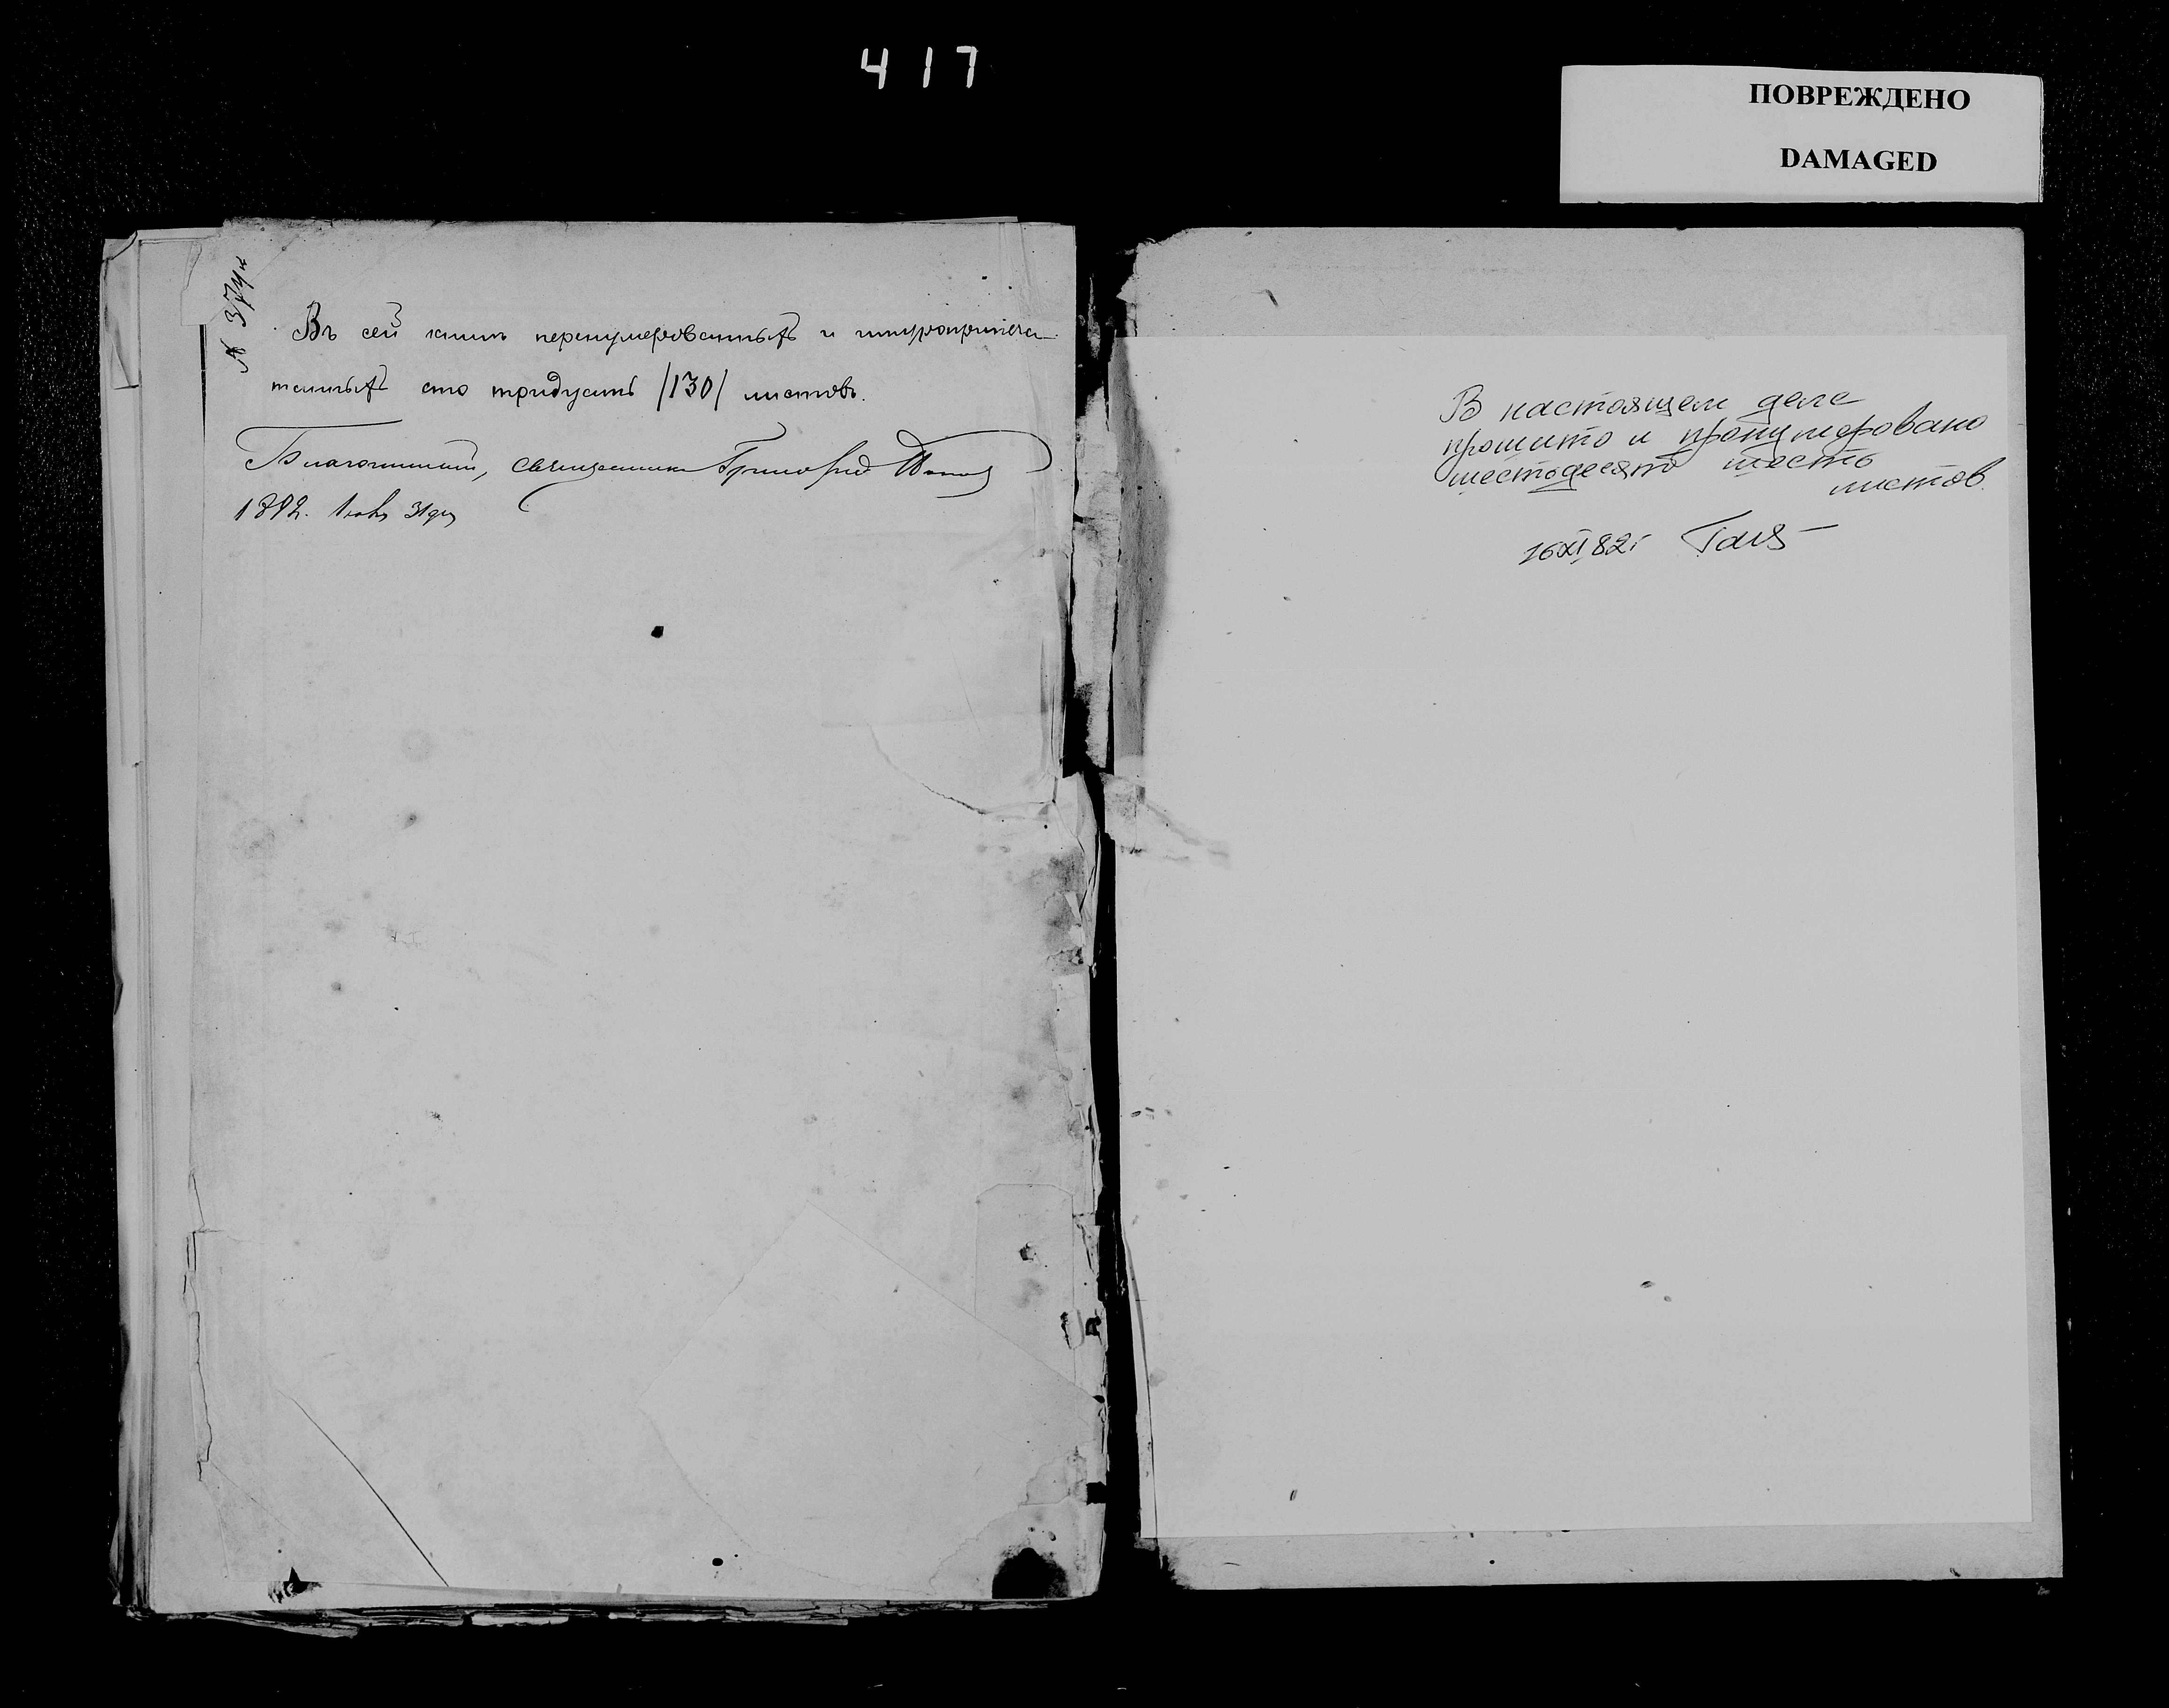 417
ПОВРЕЖДЕНО
DAMAGED
Въ сей книгѣ перенумерованныхъ и шнуроприпеча-
танныхъ сто тридцать /130/ листовъ.
Благочинный, священникъ Григорій Попов
1892. 31 дня
В настоящем деле
прошито и пронумеровано
шестьдесят шесть
листов.
16 XI 82г